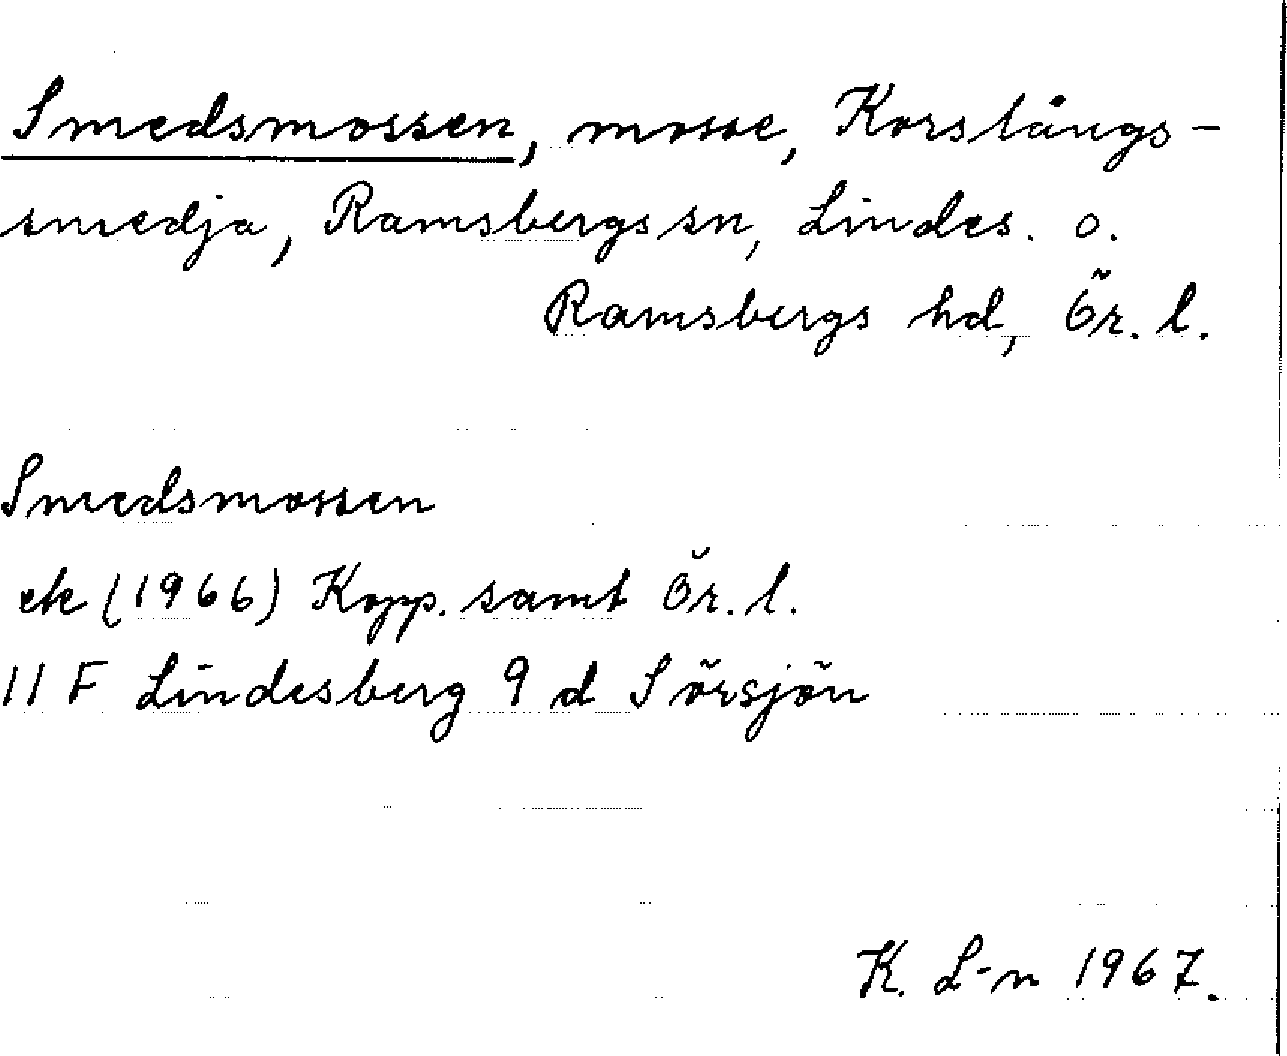 Smedsmossen, mosse, Korslångs-
smedja, Ramsbergs sn, Lindes. o.
Ramsbergs hd, Ör. l.
Smedsmossen
ek (1966) Kopp. samt Ör. l.
11 F Lindesberg 9 d Sörsjön
K. L-n 1967.